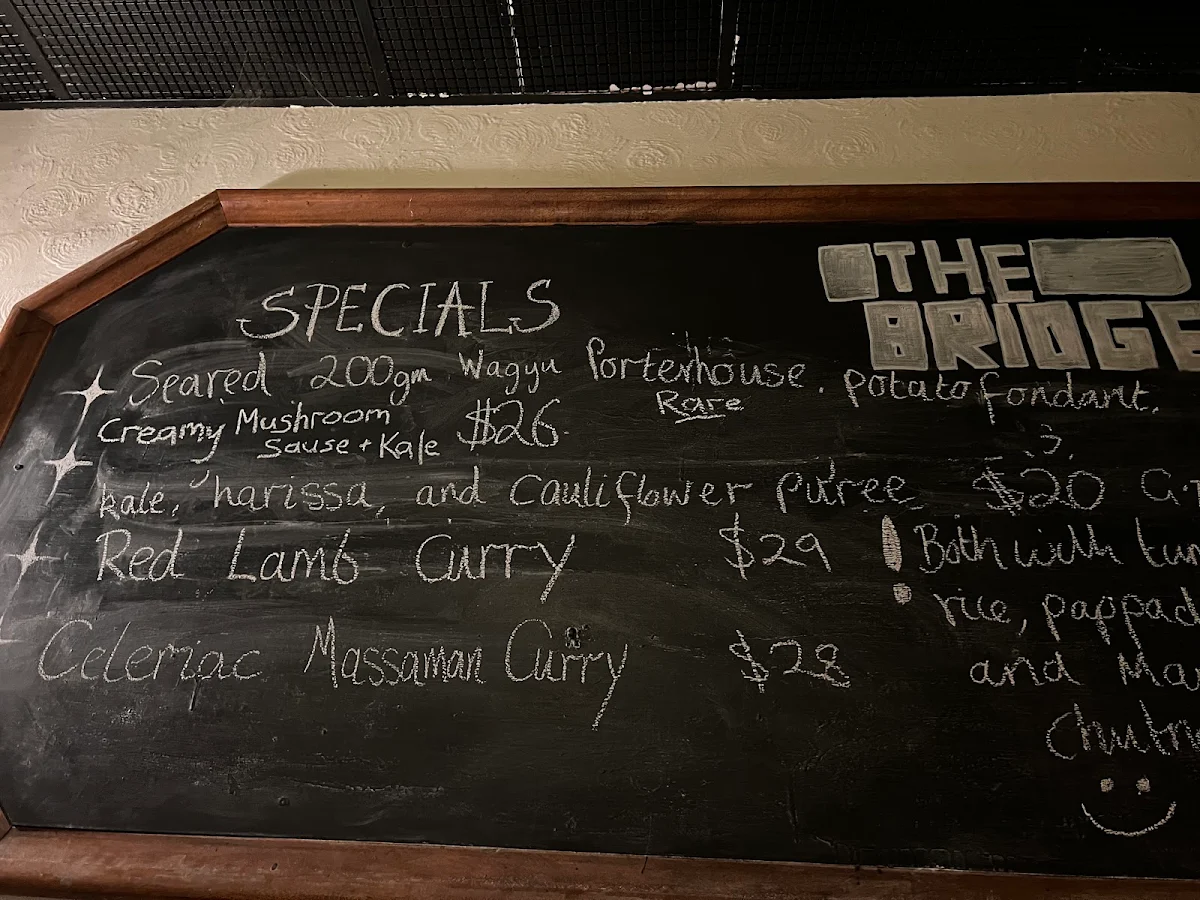 SPECIALS
THE
BRIDGE
Seared 200gm Wagyu Porterhouse. potato fondant.
Rare
Creamy Mushroom
Sause + Kale $26
kale, harissa, and cauliflower puree $20
Red Lamb Curry $29
Celeriac Massaman Curry $28
! Both with
rice,
and